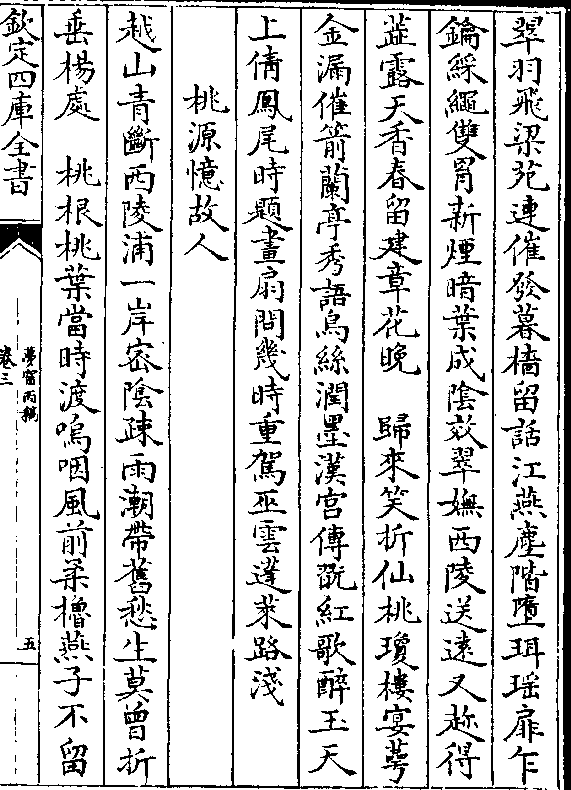 翠羽飛梁苑連催發暮檣留話江燕塵階墮珥瑶扉乍
鑰綵繩雙罥新煙暗葉成陰效翠嫵西陵送遠又趂得
蘂露天香春留建章花晚　歸來笑折仙桃瓊樓宴蕚
金漏催箭蘭亭秀語烏絲潤墨漢宫傳翫紅歌醉玉天
上倩鳳尾時題畫扇問幾時重駕巫雲蓬萊路淺
桃源憶故人
越山青斷西陵浦一岸宻陰疎雨潮帶舊愁生莫曾折
垂楊處　桃根桃葉當時渡嗚咽風前柔櫓燕子不留
欽定四庫全書
夢窗丙稿
卷三
五